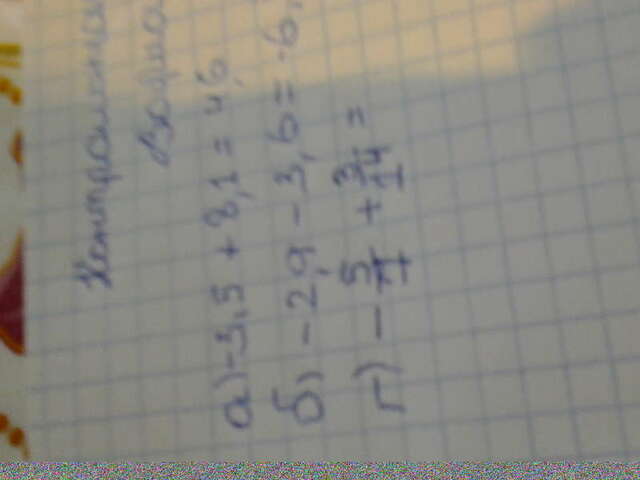 Контрольная
а) -3,5 + 8,1 = 4,6
б) - 2,9 - 3,6 = -6,
г) - 5/7 + 3/14 =